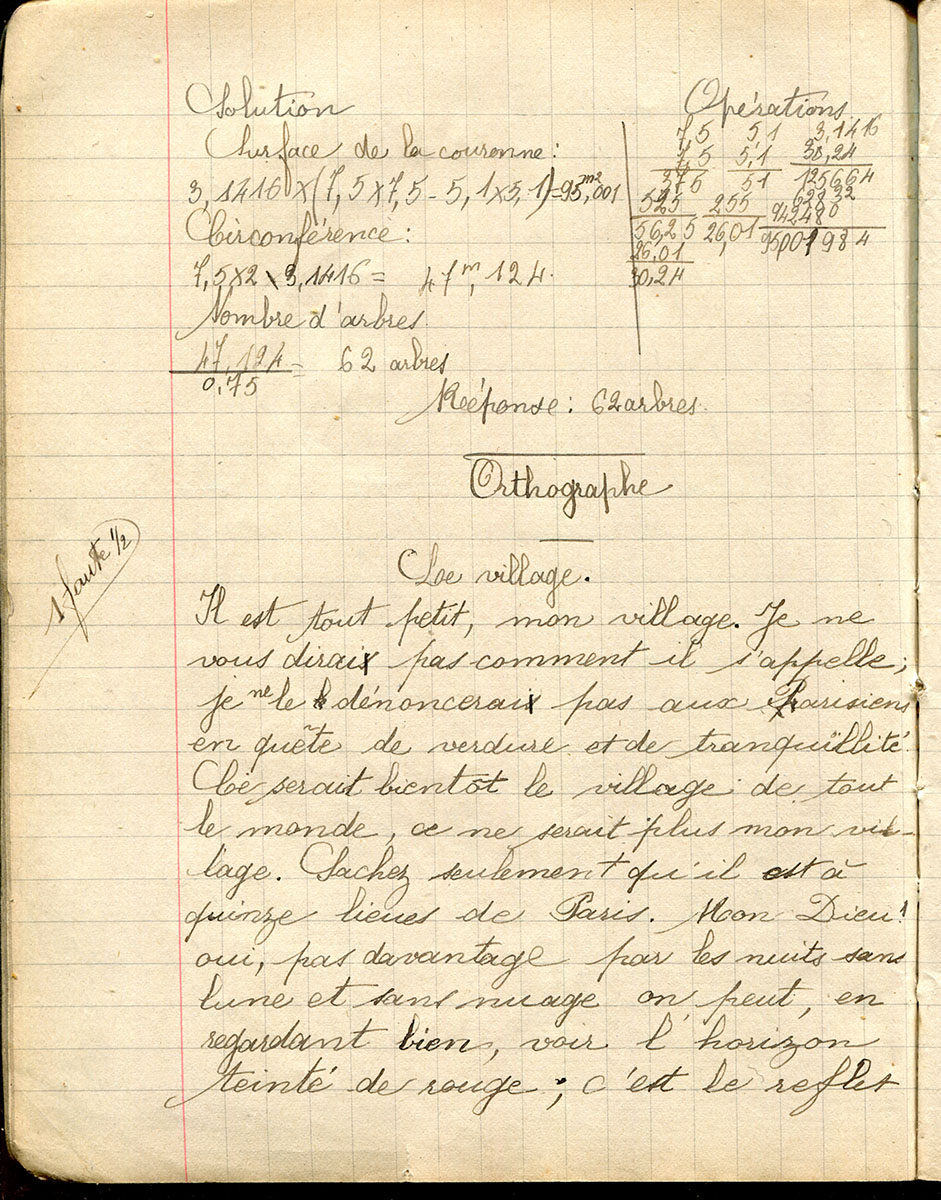 Solution
Surface de la couronne:
3,1416 x (7,5 x 7,5 - 5,1 x 5,1) = 95,m2 001
Circonférence:
7,5 x 2 x 3,1416 = 47m, 124.
Nombre d'arbres
47,124
0,75
= 62 arbres
Réponse: 62 arbres.
Opérations
7,5 5,1 3,1416
7,5 5,1 30,24
375 51 125664
525 255 62832
56,25 26,01 942480
26,01 95001984
30,24
Orthographe
1 faute 1/2
Le village.
Il est tout petit, mon village. Je ne
vous dirai pas comment il s'appelle;
je ne le dénoncerai pas aux Parisiens
en quête de verdure et de tranquïllité
Ce serait bientôt le village de tout
le monde, ce ne serait plus mon vil-
lage. Sachez seulement qu'il est à
quinze lieues de Paris. Mon Dieu!
oui, pas davantage par les nuits sans
lune et sans nuage on peut, en
regardant bien, voir l'horizon
teinté de rouge; c'est le reflet